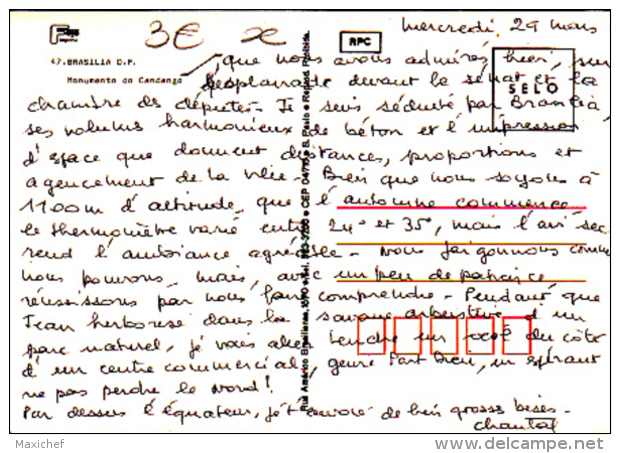 3€ x
mercredi, 29 mars
RPC
47.BRASILIA D.F.
Monumento do Candango
SELO
, que nous avons admirés hier, sur
l'esplanade devant le sénat et la
chambre des députés - Je suis séduite par Brasilia,
ses volumes harmonieux de béton et l'impression
d'espace que donnent distances, proportions et
agencement de la ville. Bien que nous soyons à
1100m d'altitude, que l'automne commence,
le thermomètre varie entre 24° et 35°, mais l'air sec
rend l'ambiance agréable - Nous comme
nous pouvons, mais, avec un peu de patience
réussissons par nous faire comprendre - Pendant que
Jean herborise dans la savane arbustive d'un
parc naturel, je vais aller du côté
d'un centre commercial, genre Part Dieu, en espérant
ne pas perdre le nord!
Par dessus l'équateur, je t'envoie de bien grosses bises -
Chantal
Rua Américo Brasiliense, CEP S. Paulo Reprod. Proibida
Maxichef
www.delcampe.net